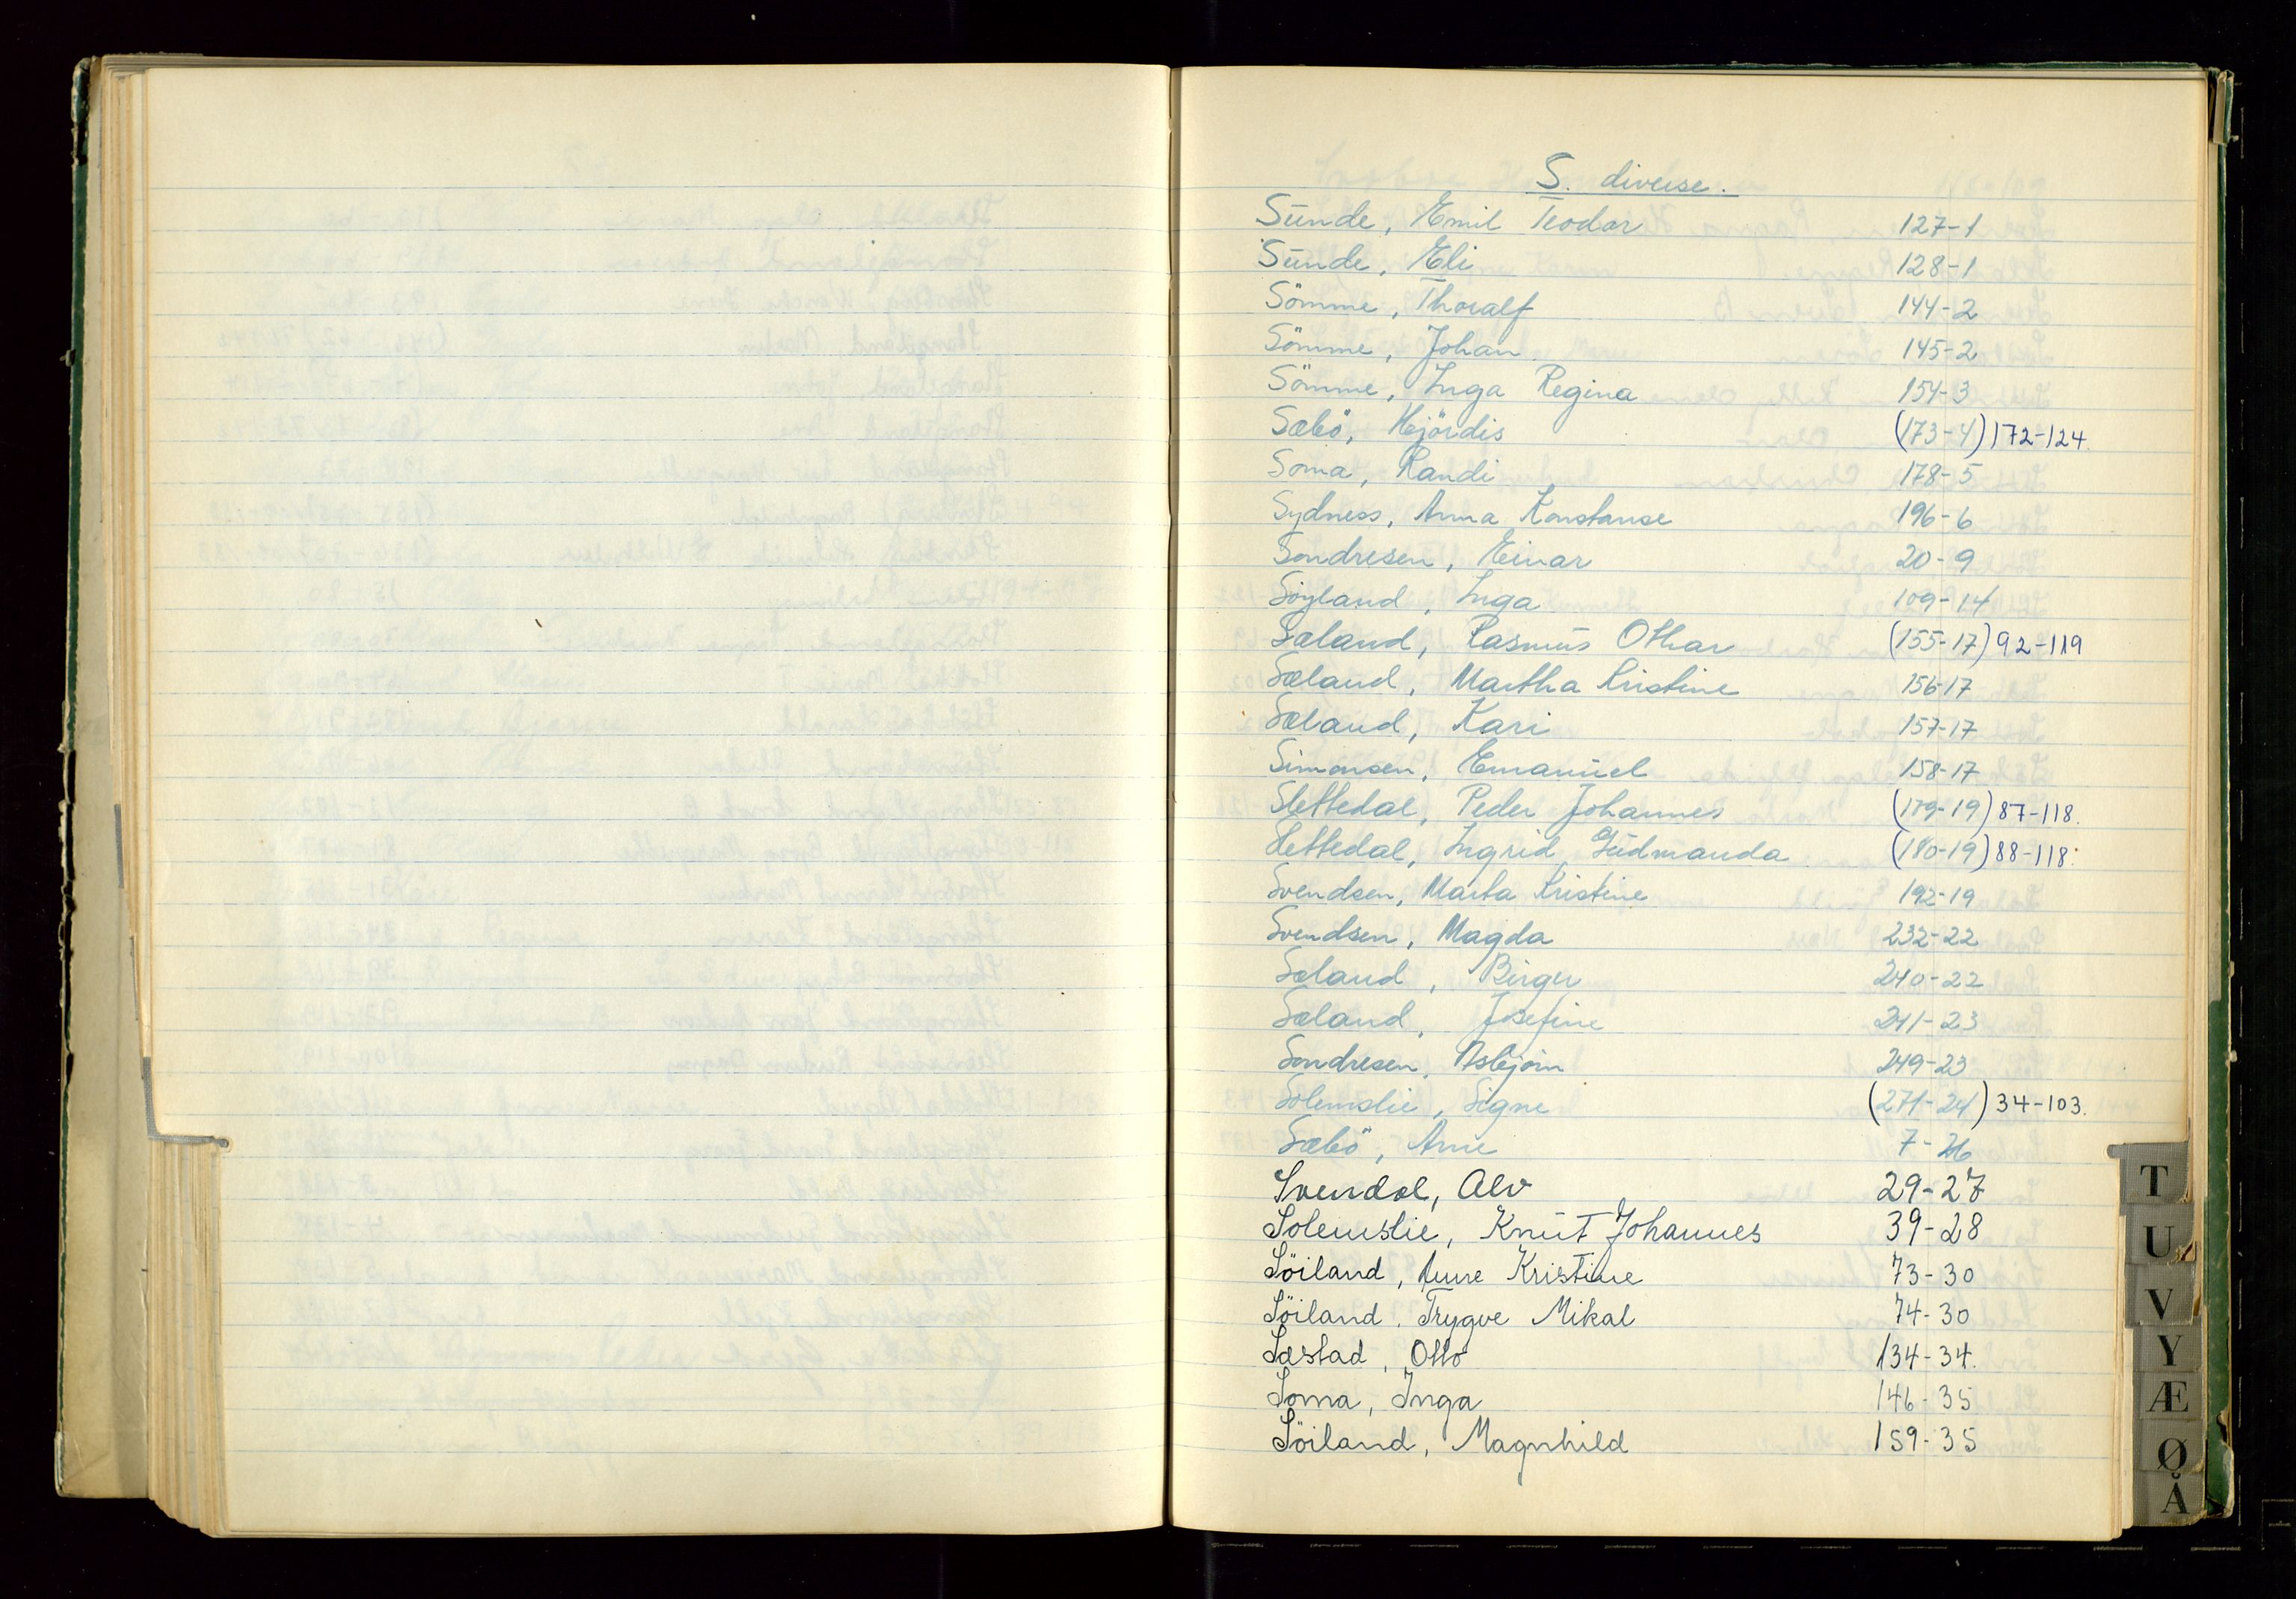 S. diverse.
Sunde, Emil Teodor 127-1
Sunde, Eli 128-1
Sömme, Thoralf 144-2
Sömme, Johan 145-2
Sömme, Inga Regina 154-3
Sæbö, Hjördis (173-4) 172-124.
Soma, Randi 178-5
Sydness, Anna Konstanse 196-6
Sondresen, Einar 20-9
Söyland, Inga 109-14
Sæland, Rasmus Othar (155-17) 92-119
Sæland, Martha Kristine 156-17
Sæland, Kari 157-17
Simonsen, Emanuel 158-17
Slettedal, Peder Johannes (179-19) 87-118.
Slettedal, Ingrid Gudmunda (180-19) 88-118.
Svendsen, Marta Kristine 192-19
Svendsen, Magda 232-22
Sæland, Birger 240-22
Sæland, Josefine 241-23
Sondresen, Asbjörn 249-23
Solemslie, Signe (271-24) 34-103.
Sæbö, Arne 7-26
Svendal, Alv 29-27
Solemslie, Knut Johannes 39-28
Söiland, Anne Kristine 73-30
Söiland, Trygve Mikal 74-30
Sæstad, Otto 134-34.
Soma, Inga 146-35
Söiland, Magnhild 159-35
T
U
V
Y
Æ
Ø
Å